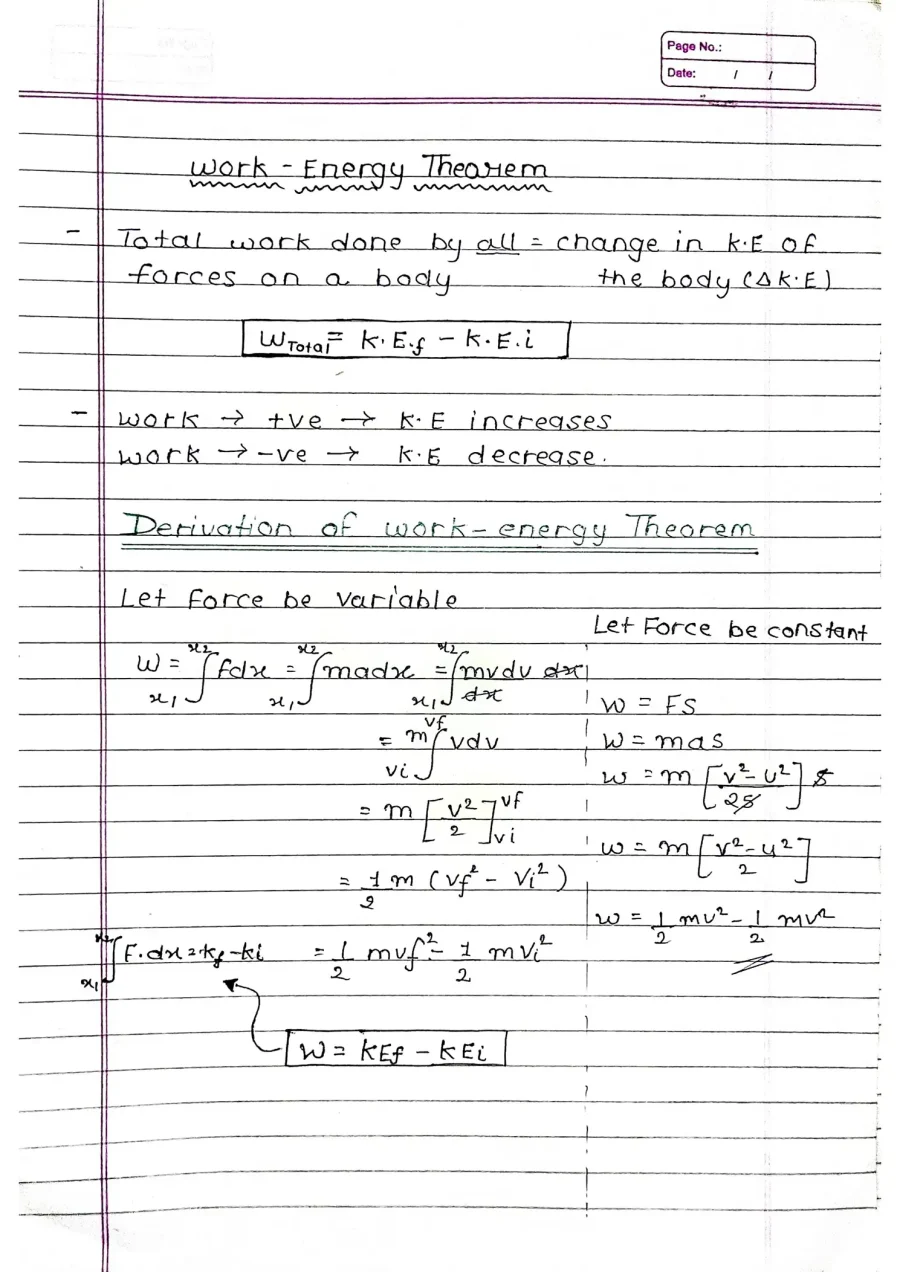 Page No.:
Date: / /
Work - Energy Theorem
- Total work done by all = change in K.E of
forces on a body the body (ΔK.E)
W Total = K.E.f - K.E.i
- work → +ve → K.E increases
work → -ve → K.E decrease.
Derivation of work-energy Theorem
Let force be variable
W = ∫x₁^x₂ fdx = ∫x₁^x₂ madx = ∫x₁^x₂ mvdv/dx dx
= m ∫vi^vf vdv
= m [v²/2]vi^vf
= 1/2 m (vf² - Vi²)
∫x₁^x₂ F.dx = kf - ki = 1/2 mvf² - 1/2 mVi²
W = KEf - KEi
Let Force be constant
W = FS
W = mas
W = m [v² - u²/2s] s
W = m [v² - u²/2]
W = 1/2 mv² - 1/2 mv²